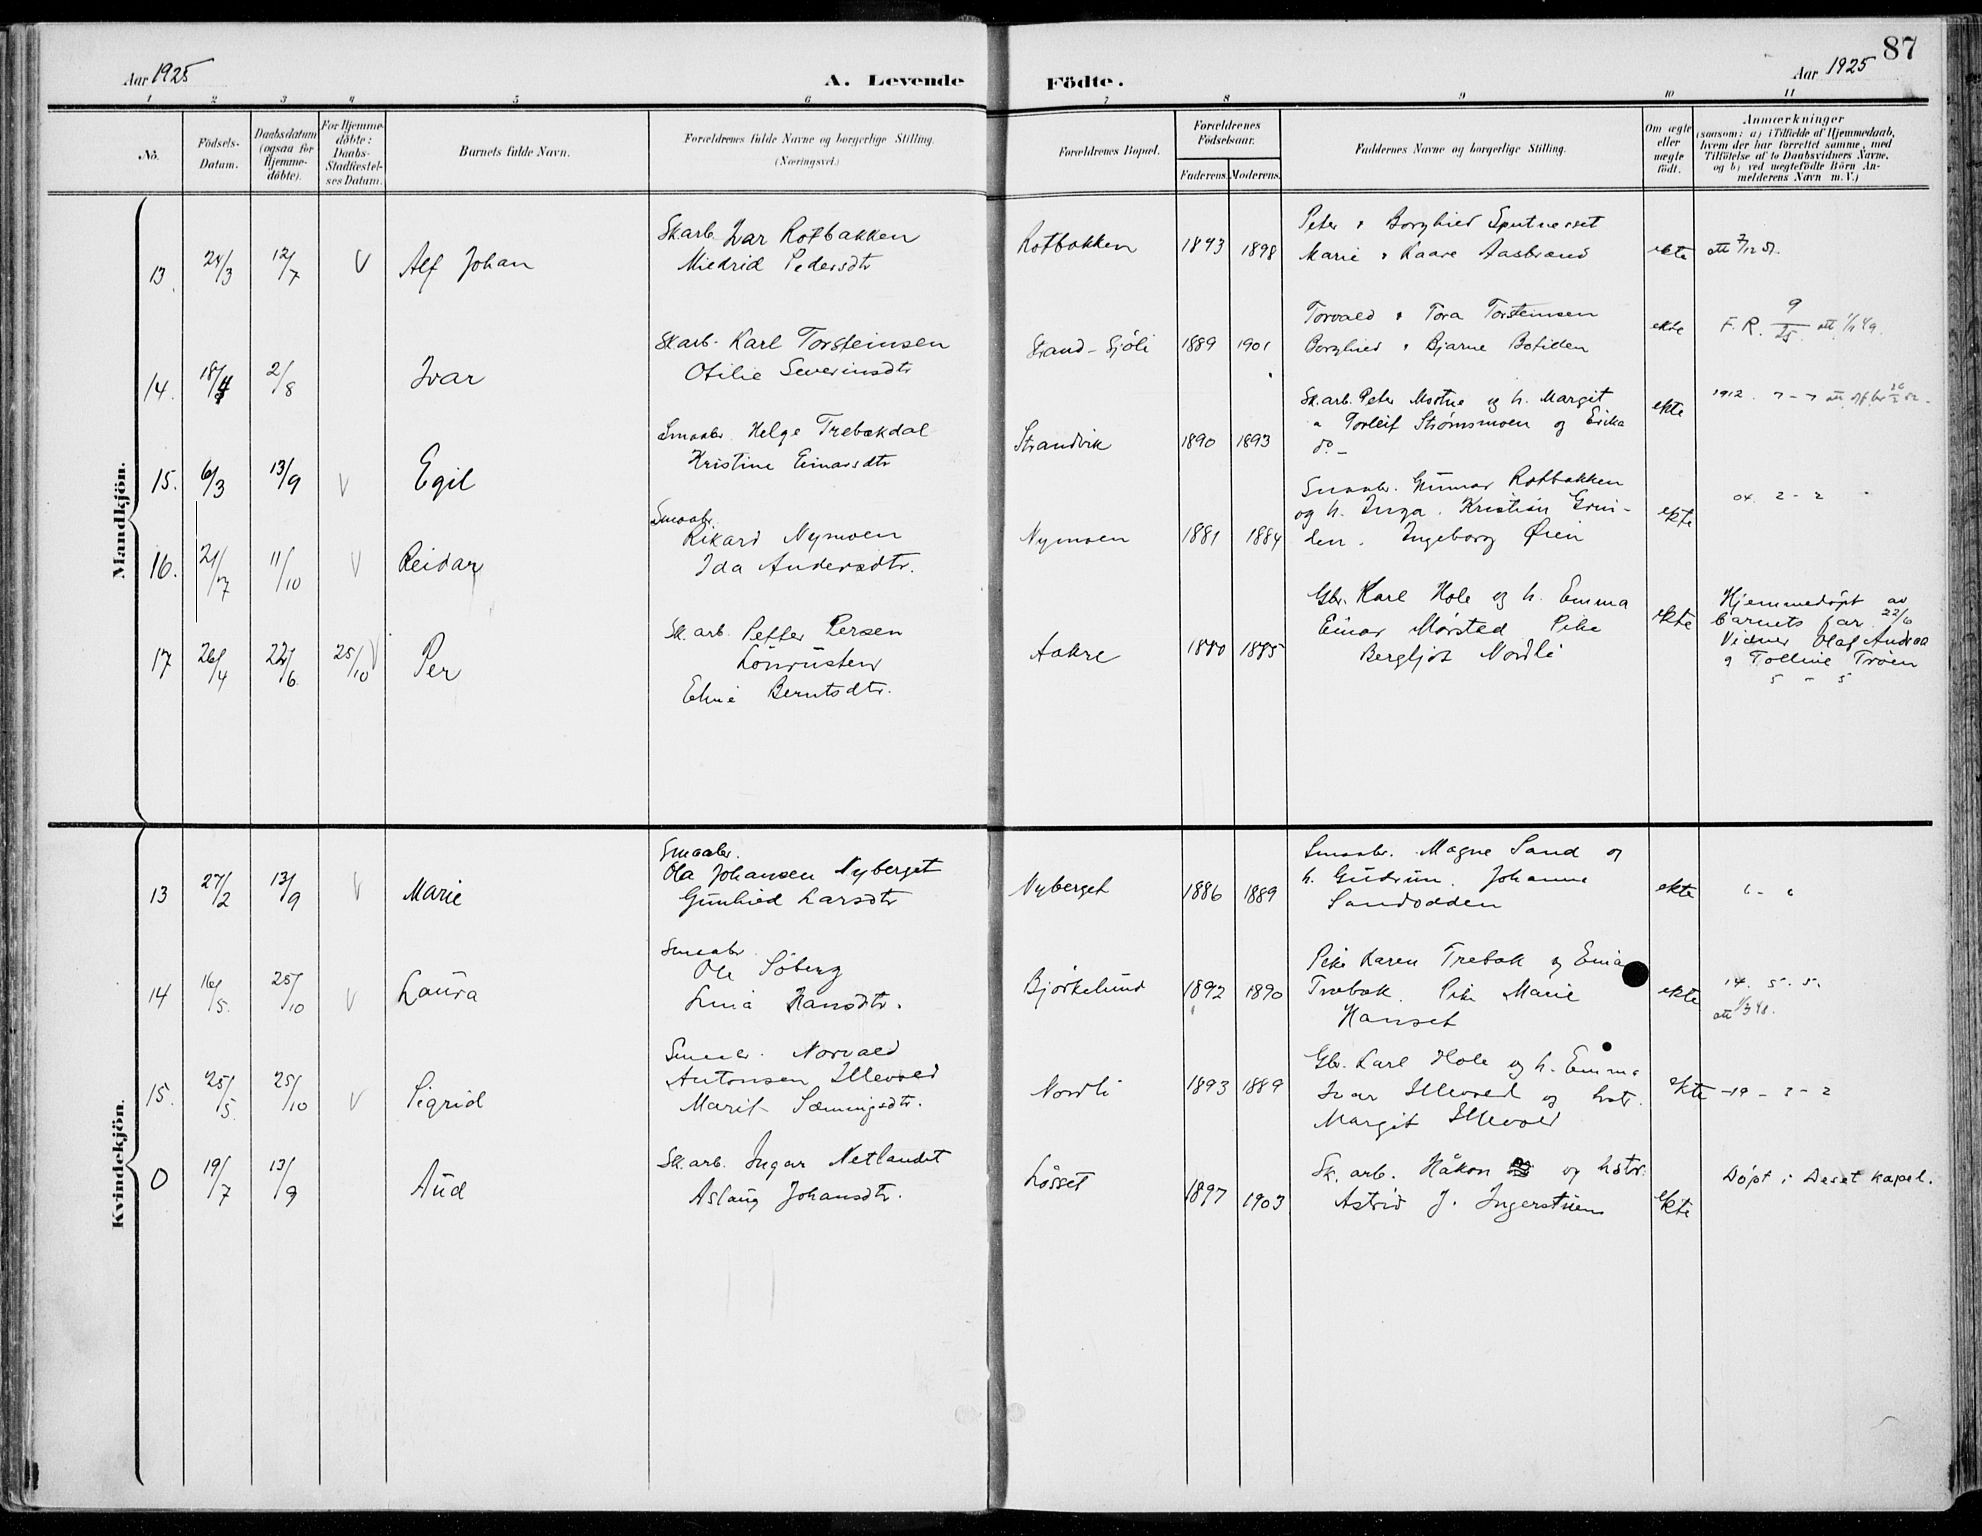 87
Aar 1925
A. Levende Födte.
Aar 1925
1 2 3 4 5 6 7 8 9 10 11
No.
Födsels-Datum.
Daabsdatum (ogsaa for Hjemme-döbte).
For Hjemme-döbte: Daabs-Stadfæstel-ses Datum.
Barnets fulde Navn.
Forældrenes fulde Navne og borgerlige Stilling.
(Næringsvei.)
Forældrenes Bopæl.
Forældrenes Födselsaar.
Faderens. Moderens.
Faddernes Navne og borgerlige Stilling.
Om ægte eller uægte födt.
Anmærkninger
(saasom: a) i Tilfælde af Hjemmedaab,
hvem der har forrettet samme, med
Tilföielse af to Daabsvidners Navne,
og b) ved uægtefödte Börn An-
melderens Navn m. V.)
Mandkjön.
13. 24/3 12/7 V Alf Johan
Skarb. Ivar Rotbakken
Miedrid Pedersdtr
Rotbakken 1893 1898
Peter & Borghied
Marie & Kaare Aasbrand
ekte
14. 18/4 2/8 Ivar
Skarb. Karl Torsteinsen
Otilie Severinsdtr
Strand-Sjöli 1889 1901
Torvald & Tora Torsteinsen
Borghied & Bjarne
ekte
F. R. 9/25
15. 6/3 13/9 V Egil
Smaabr. Helge Trebækdal
Kristine Einarsdtr
Strandvik 1890 1893
Sk.arb. Peter og h. Margit
Torleif Strømsmoen og Erika
do -
ekte
1912.
16. 21/7 11/10 V Reidar
Smaabr.
Rikard Nymoen
Ida Andersdtr.
Nymoen 1881 1884
Smaabr. Gunnar Rotbakken
og h. Inga. Kristian Grin-
den. Ingeborg Øien
ekte
04. 2 - 2
17 26/4 22/6 25/10 V Per
Sk. arb. Petter Persen
Lönrusten
Eline Berntsdtr.
Aakre 1880 1885
Gbr. Karl Hole og h. Emma
Einar Morsted Pike
Bergljot Nordli
ekte
Hjemmedøpt av
barnets far 22/6
Vidner Olaf Andraa
& Tolline Troen
5 - 5
Kvindekjön.
13 27/2 13/9 V Marie
Smaabr.
Ola Johansen Nyberget
Gunhied Larsdtr
Nyberget 1886 1889
Smaabr. Magne Sand og
h. Gudrun. Johanne
Sandodden
ekte
6 - 6
14 16/5 25/10 V Laura
Smaabr.
Ole Söberg
Lina Hansdtr.
Bjørkelund 1892 1890
Pike Karen Trebak og Einar
Trebak. Pike Marie
Hanset
ekte
14. 5. 5.
15. 25/5 25/10 V Sigrid
Norvald
Antonsen Illevold
Marit Sæmingsdtr.
Nordli 1893 1889
Gbr. Karl Hole og h. Emma
Ivar Illevold og hstr.
Margit Illevold
ekte
19 - 2 - 2
0 19/7 13/9 Aud
Sk.arb. Ingar Netlandet
Aslaug Johansdtr.
Løsset 1897 1903
Sk. arb. Håkon og hstr.
Astrid J. Ingerstuen
ekte
Døpt i Deset kapel.